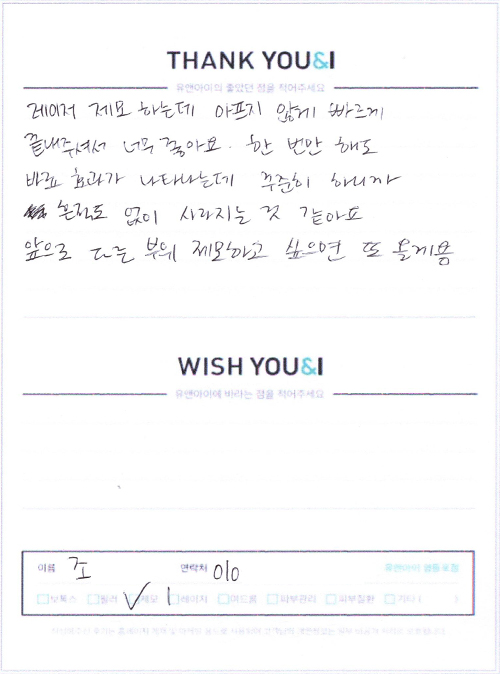 THANK YOU&I
유앤아이의 좋았던 점을 적어주세요
레이저 제모 하는데 아프지 않게 빠르게
끝내주셔서 너무 좋아요. 한 번만 해도
바로 효과가 나타나는데 꾸준히 하니까
흔적도 없이 사라지는 것 같아요
앞으로 다른 부위 제모하고 싶으면 또 올게용
WISH YOU&I
유앤아이에 바라는 점을 적어주세요
이름 조 연락처 010 유앤아이
보톡스 필러 제모 레이저 여드름 피부관리 피부질환 기타 ( )